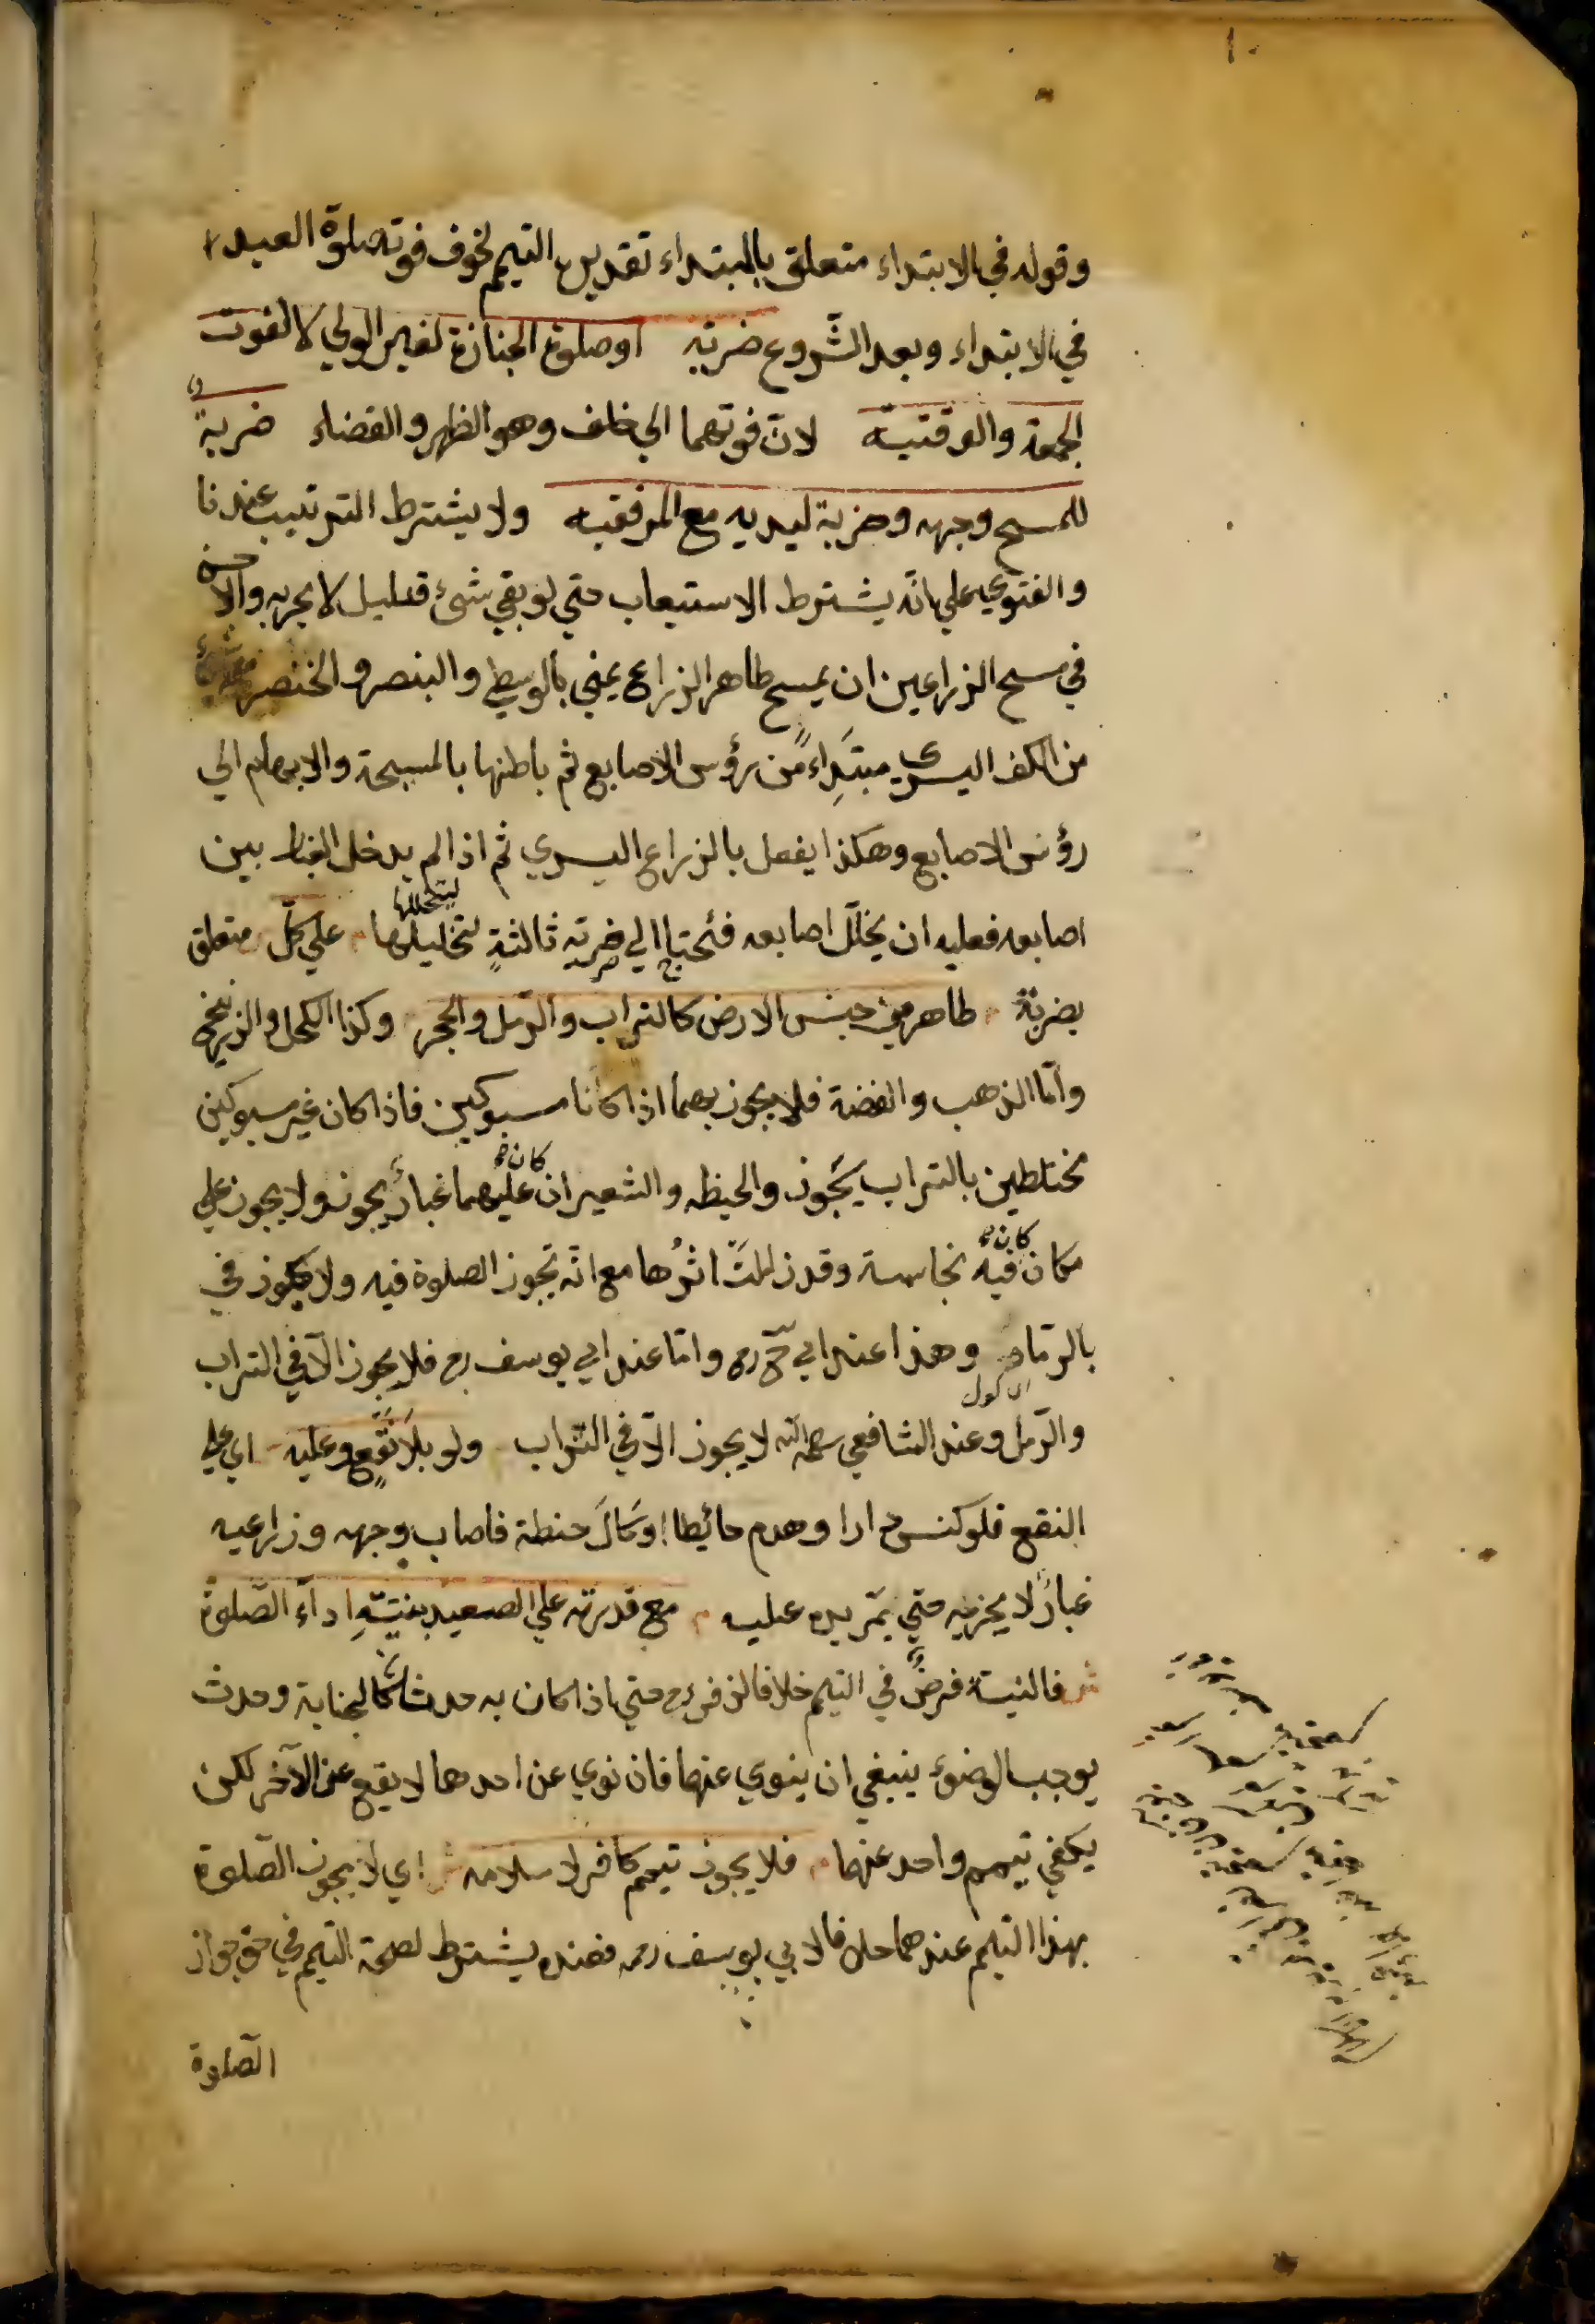 ١٠
وقوله في الابتداء متعلق بالمبتداء تقديره التيمم لخوف فوت صلوة العيد
في الابتداء وبعد الشّروع ضربة او صلوة الجنازة لغير الولي لا لفوت
الجمعة والوقتية لانّ فوتهما الي خلف وهو الظهر والقضاء ضربةٌ
للمسح وجهه وضربة ليديه مع المرفقيه ولا يشترط الترتيب عندنا
والفتوي علي انّه يشترط الاستيعاب حتي لو بقي شئ قليل لا يجزيه والاحسن
في مسح الزراعين ان يمسح ظاهر الزراع يمني بالوسطي والبنصر والخنصر
من الكف اليسري مبتَدِاءً من رؤس الاصابع ثم باطنها بالمسبحة والابهام الي
رؤس الاصابع وهكذا يفعل بالزراع اليسري ثم اذا لم يدخل الغبار بين
اصابعه فعليه ان يخلّل اصابعه فيحتاج الي ضربة ثالثةٍ لتخليلها علي كلّ متعلق
بضربة طاهر من جنس الارض كالتراب والرّمل والحجر وكذا الكحل والزرنيخ
وامّا الذهب والفضة فلا يجوز بهما اذا كانا مسبوكين فاذا كان غير مسبوكين
مختلطين بالتراب يجوز والحيطه والشعير ان كان عليهما غبارٌ يجوز ولا يجوز علي
مكان كان فيه نجاسة وقد زالتْ اثرُها مع انّه تجوز الصلوة فيه ولا يجوز في
بالرّمادِ وهذا عند ابي ح رح وامّا عند ابي يوسف رح فلا يجوز الّا في التراب
والرّمل وعند الشافعي رحمه الله لا يجوز الّا في التّراب ولو بلَا نَقْعٍ وعليه اي علي
النقع فلو كنس دارا وهدم حائيطا او كالَ حنطة فاصاب وجهه وزراعيه
غبارٌ لا يجزيه حتي يمّر يده عليه مع قدرته علي الصعيد بنيّةِ اداء الصّلوة
فالنيّة فرضٌ في التيمم خلافا لزفر رح حتي اذا كان به حدثان كالجنابة وحدث
يوجب الوضوء ينبغي ان ينوي عنهما فان نوي عن احدهما لا يقع عن الآخر لكن
يكفي تيمم واحد عنهما فلا يجوز تيمم كافر لاسلامه اي لا يجوز الصّلوة
بهذا التيمم عندهما خلافا لابي يوسف رحه فعنده يشترط لصحة التيمم في حق جواز
الصّلوة